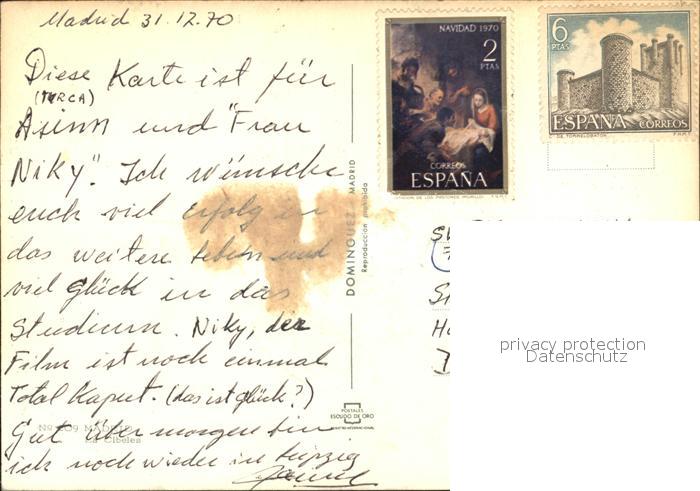 Madrid 31.12.70
Diese Karte ist für
(TURCA)
und "Frau
Niky". Ich wünsche
euch viel Erfolg in
das weitere leben und
viel Glück in das
Studium. Niky, der
Film ist noch einmal
Total Kaput. (das ist glück?)
Gut Über morgen bin
ich noch wieder in Leipzig
NAVIDAD 1970
2
PTAS
CORREOS
ESPAÑA
6
PTAS
ESPAÑA CORREOS
C. DE TORRELOBATON F.N.M.T.
DOMINGUEZ MADRID
Reproducción prohibida
POSTALES
ESCUDO DE ORO
Nº 209 MADRID
La Cibeles
privacy protection
Datenschutz